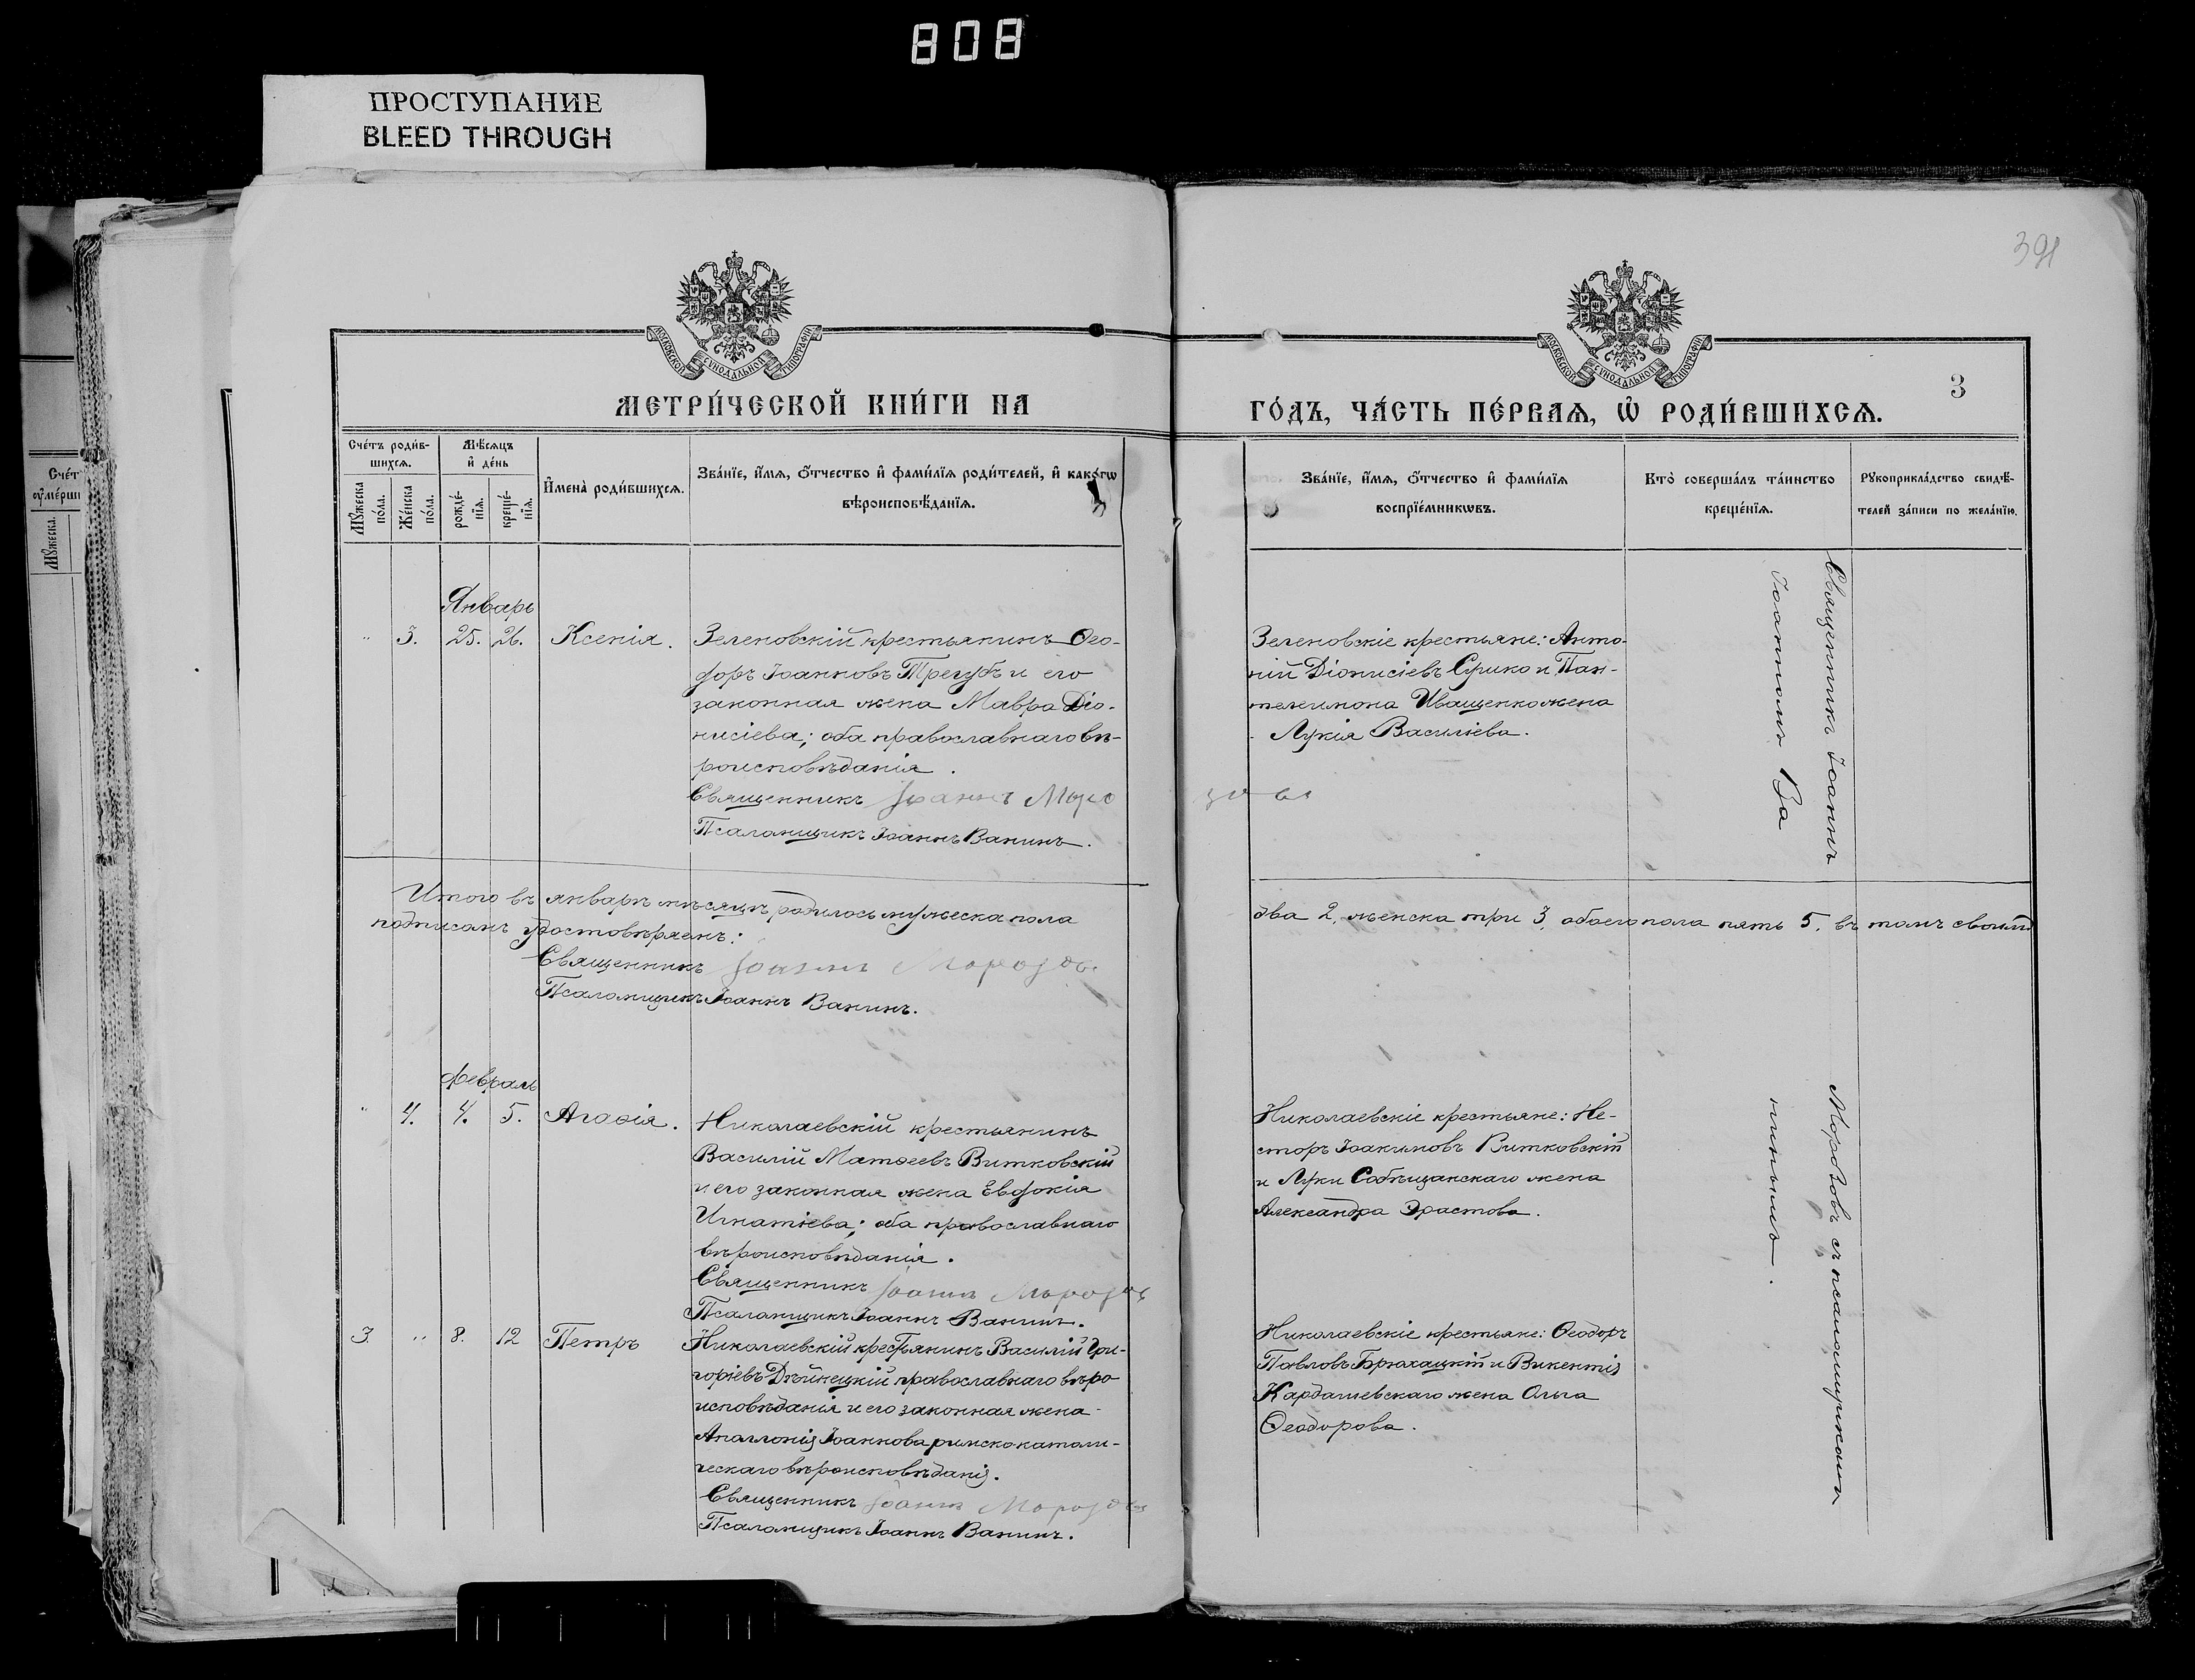 808
ПРОСТУПАНИЕ
BLEED THROUGH
391
3
МЕТРИ́ЧЕСКОЙ КНИ́ГИ НА
ГО́ДЪ, ЧА́СТЬ ПЕ́РВАѦ, Ѡ҆ РОДИ́ВШИХСѦ.
Сче́тъ роди́в-
шихсѧ.
Мꙋ́жеска по́ла.
Же́нска по́ла.
Мѣ́сѧцъ и҆ де́нь
рожде́-нїѧ.
креще́-нїѧ.
И҆мена̀ роди́вшихсѧ.
Зва́нїе, и҆́мѧ, ѻ҆́тчество и҆ фами́лїѧ роди́телей, и҆ како́гѡ
вѣроисповѣ́данїѧ.
Зва́нїе, и҆́мѧ, ѻ҆́тчество и҆ фами́лїѧ
воспрїе́мникѡвъ.
Кто̀ соверша́лъ та́инство
креще́нїѧ.
Рꙋкоприкла́дство свидѣ́-
телей за́писи по жела́нїю.
Январь
" 3. 25. 26. Ксенія.
Зеленовскій крестьянинъ Ѳео-
доръ Іоанновъ Трегубъ и его
законная жена Мавра Діо-
нисіева; оба православнаго вѣ-
роисповѣданія.
Священникъ Іоаннъ Морозовъ
Псаломщикъ Іоаннъ Ванинъ.
Зеленовскіе крестьяне: Анто-
ній Діонисіевъ Сушко и Пан-
телеимона Иващенко жена
Лукія Василіева.
Священникъ Іоаннъ Морозовъ съ псаломщикомъ
Іоанномъ Ванинымъ.
Итого въ январѣ мѣсяцѣ родилось мужеска пола
два 2, женска три 3, обоего пола пять 5, въ томъ своимъ
подписомъ удостовѣряемъ:
Священникъ Іоаннъ Морозовъ
Псаломщикъ Іоаннъ Ванинъ.
Февраль
" 4. 4. 5. Агаѳія.
Николаевскій крестьянинъ
Василій Матѳеевъ Витковскій
и его законная жена Евдокія
Игнатіева; оба православнаго
вѣроисповѣданія.
Священникъ Іоаннъ Морозовъ
Псаломщикъ Іоаннъ Ванинъ.
Николаевскіе крестьяне: Не-
сторъ Іоакимовъ Витковскій
и Луки Собѣщанскаго жена
Александра Эрастова.
3. " 8. 12 Петръ
Николаевскій крестьянинъ Василій Гри-
горіевъ Дѣйнецкій православнаго вѣро
исповѣданія и его законная жена
Аполлонія Іоаннова римско католи-
ческаго вѣроисповѣданія.
Священникъ Іоаннъ Морозовъ
Псаломщикъ Іоаннъ Ванинъ.
Николаевскіе крестьяне: Ѳеодоръ
Павловъ Брюхацкій и Викентія
Кардашевскаго жена Ольга
Ѳеодорова.
Сче́т
Мꙋ́жеска.